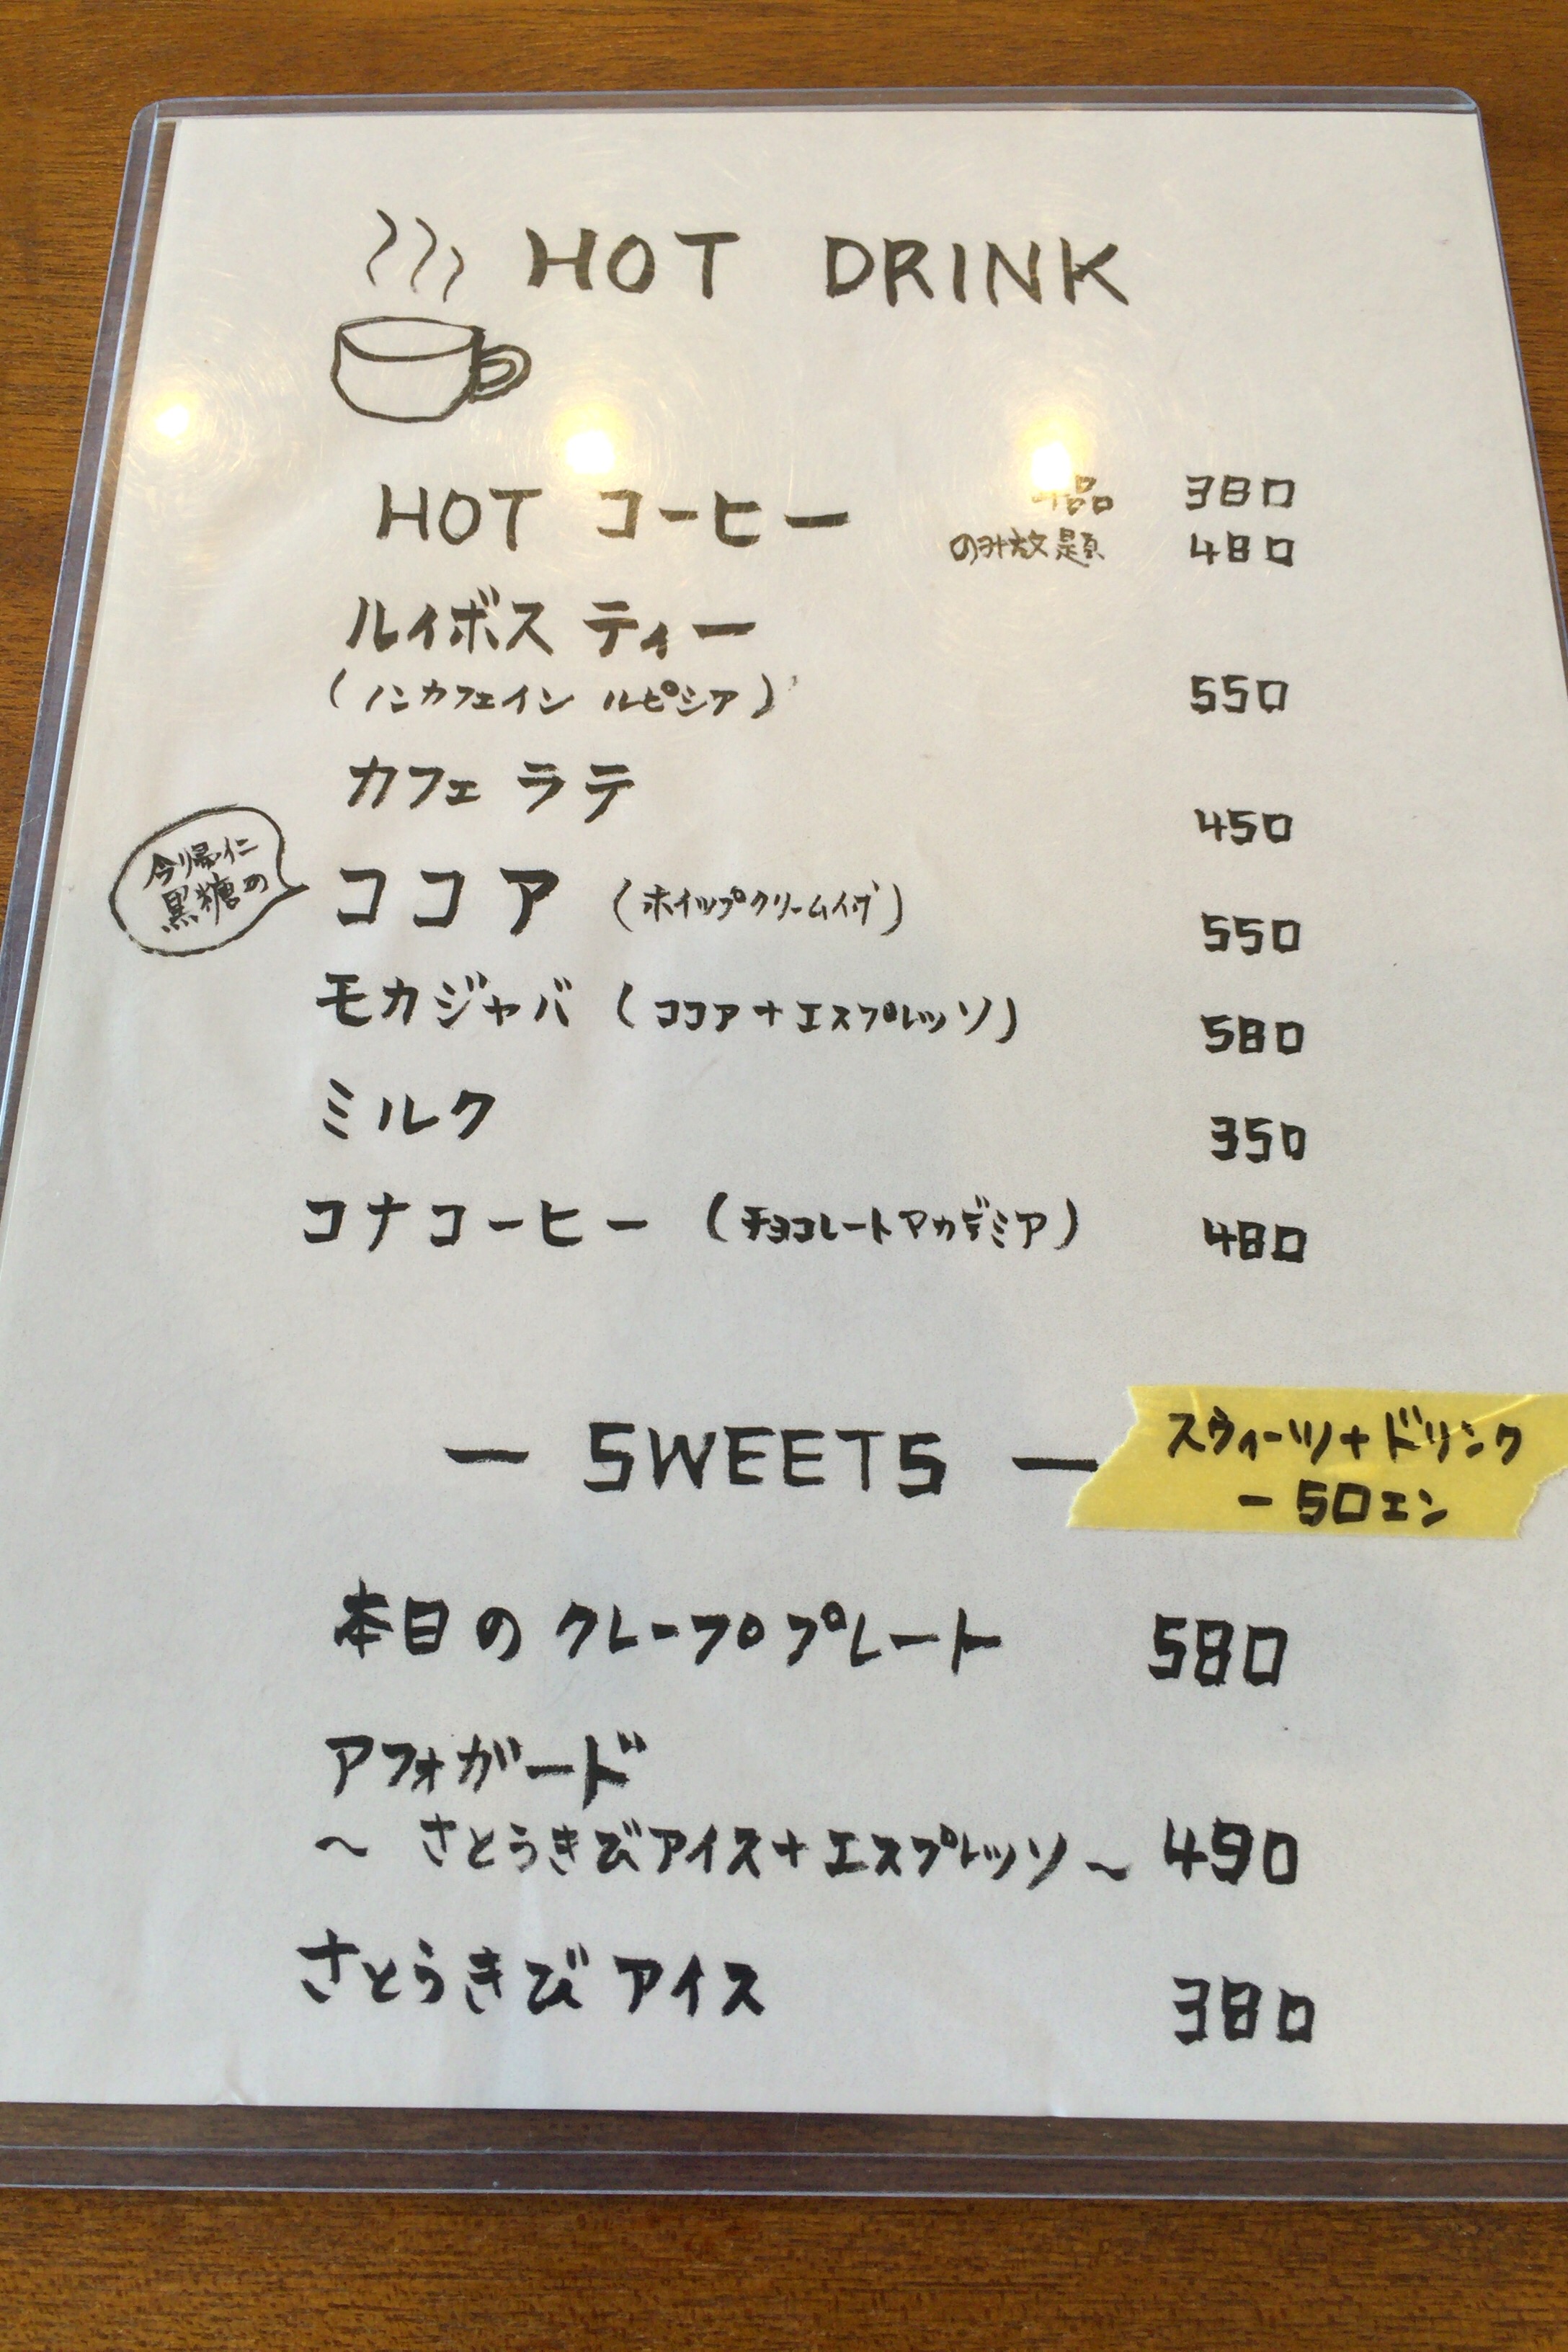 HOT DRINK
HOT コーヒー 品 380
のみ放題 480
ルイボス ティー
(ノンカフェイン ルピシア) 550
カフェ ラテ 450
今帰仁
黒糖の
ココア (ホイップクリーム付) 550
モカジャバ (ココア+エスプレッソ) 580
ミルク 350
コナコーヒー (チョコレートアカデミア) 480
— SWEETS —
スウィーツ+ドリンク
-50エン
本日の クレープ プレート 580
アフォガード
~ さとうきびアイス+エスプレッソ ~ 490
さとうきび アイス 380